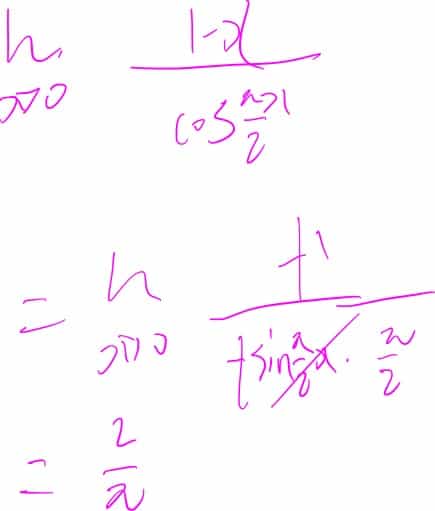 lim x→0 (1-x) / (cos πx/2)
= lim x→0 (-1) / (-sin π/2 x · π/2)
= 2/π